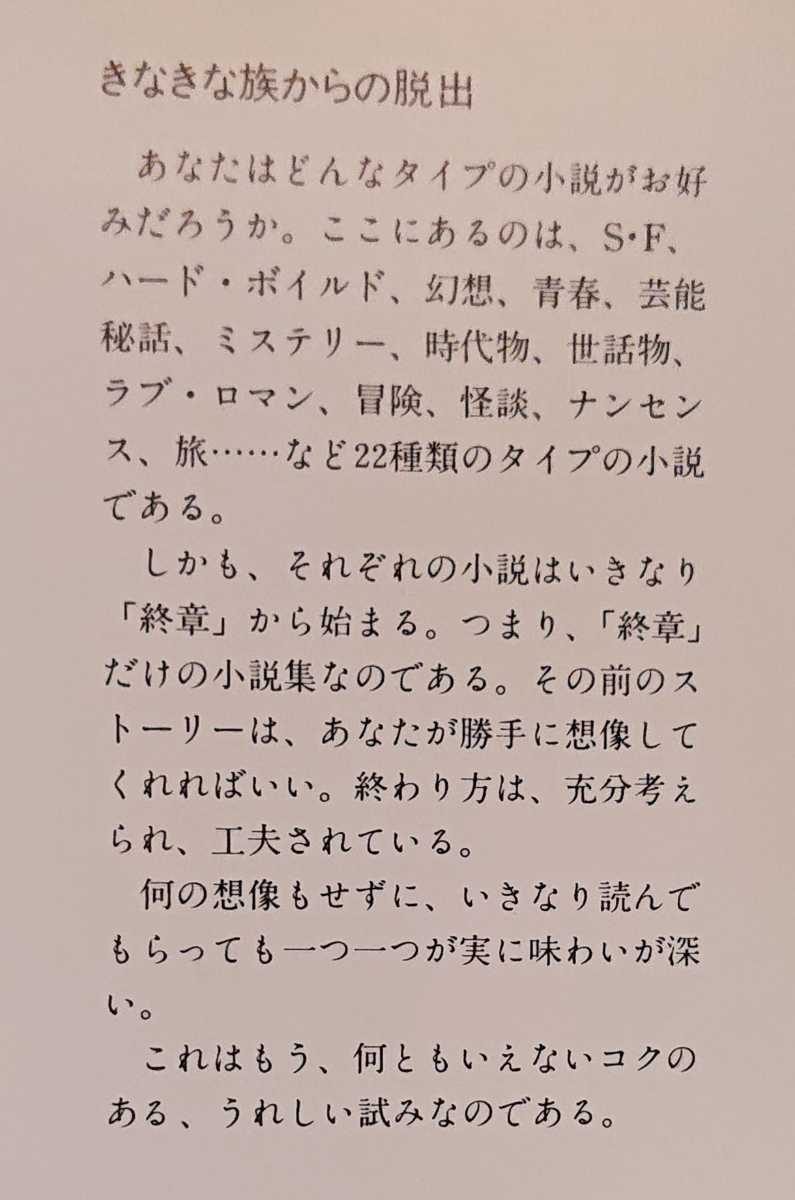 きなきな族からの脱出
あなたはどんなタイプの小説がお好
みだろうか。ここにあるのは、S・F、
ハード・ボイルド、幻想、青春、芸能
秘話、ミステリー、時代物、世話物、
ラブ・ロマン、冒険、怪談、ナンセン
ス、旅……など22種類のタイプの小説
である。
しかも、それぞれの小説はいきなり
「終章」から始まる。つまり、「終章」
だけの小説集なのである。その前のス
トーリーは、あなたが勝手に想像して
くれればいい。終わり方は、充分考え
られ、工夫されている。
何の想像もせずに、いきなり読んで
もらっても一つ一つが実に味わいが深
い。
これはもう、何ともいえないコクの
ある、うれしい試みなのである。